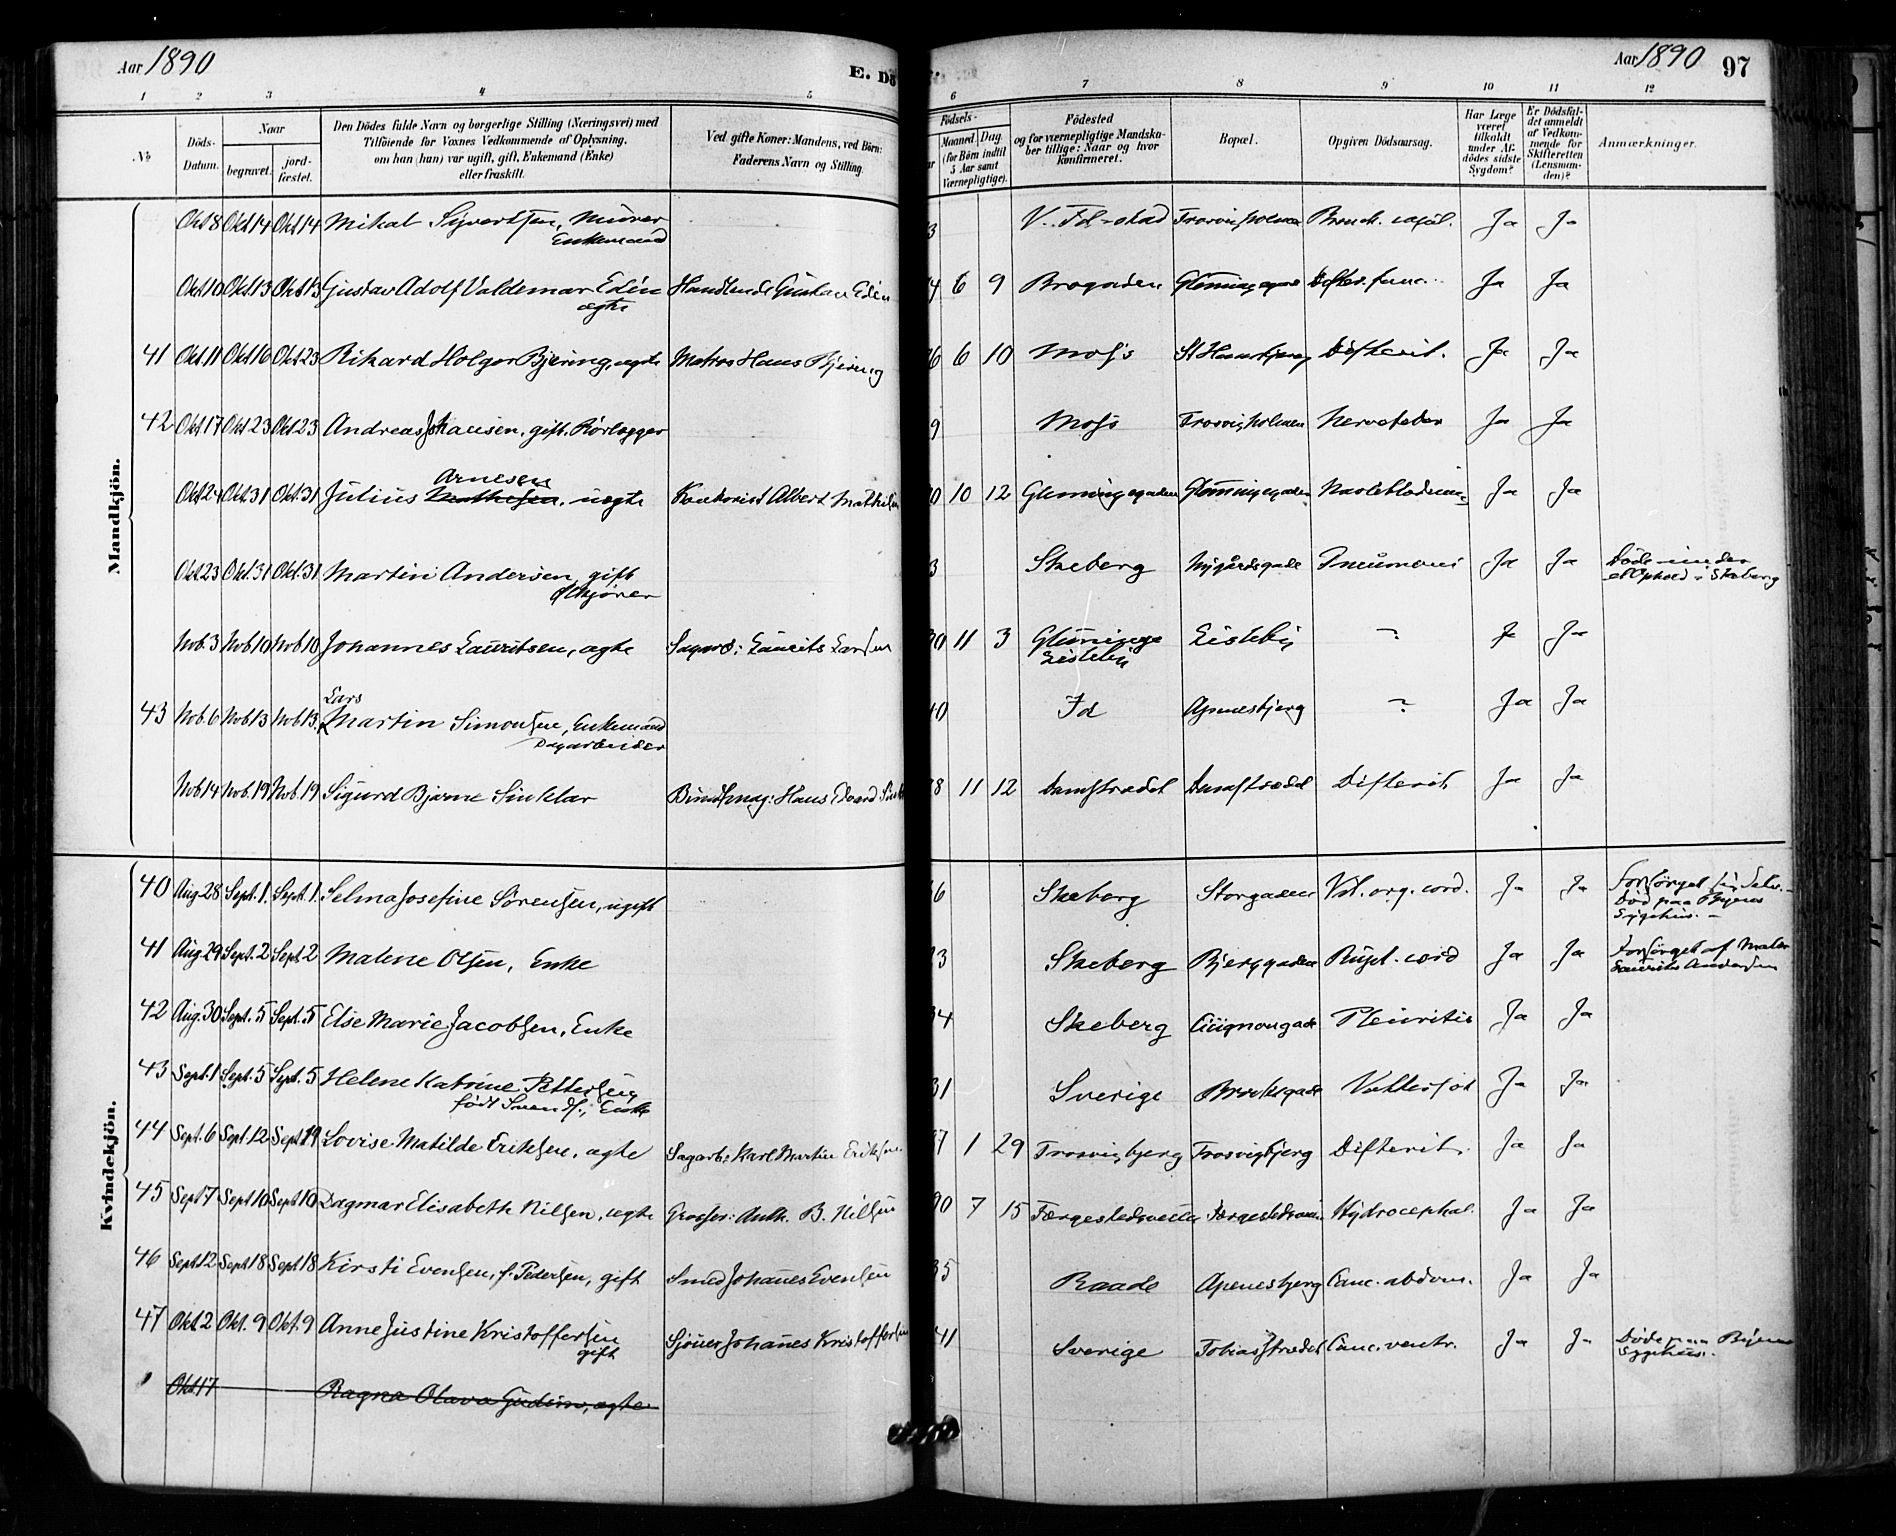 Aar 1890
E. Dö
Aar 1890 97
1 2 3 4 5 6 7 8 9 10 11 12
No
Döds-
Datum.
Naar
begravet.
jord-
fæstet.
Den Dödes fulde Navn og borgerlige Stilling (Næringsvei) med
Tilföiende for Voxnes Vedkommende af Oplysning,
om han (hun) var ugift, gift, Enkemand (Enke)
eller fraskilt.
Ved gifte Koner: Mandens, ved Börn:
Faderens Navn og Stilling.
Födsels-
Maaned. Dag.
(for Börn indtil
5 Aar samt
Værnepligtige).
Födested
og for værnepligtige Mandska-
ber tillige: Naar og hvor
konfirmeret.
Bopæl.
Opgiven Dödsaarsag.
Har Læge
været
tilkaldt
under Af-
dödes sidste
Sygdom?
Er Dödsfal-
det anmeldt
af Vedkom-
mende for
Skifteretten
(Lensman-
den)?
Anmærkninger.
Mandkjön.
Okt 8 Okt 14 Okt 14 Mikal Syvertsen, Murer 3 V. Fd-stad Trosvigholmen Bronch. capil. Ja Ja
Enkemand
Okt 10 Okt 13 Okt 13 Gustav Adolf Valdemar Edin Handlende Gustav Edin 4 6 9 Brogaden Glemmingegad Ja Ja
ægte
41 Okt 11 Okt 16 Okt 23 Rikard Holger Bjering, ægte Matros Hans Bjering 6 6 10 Moss St Hansbjerg Difterit. Ja Ja
42 Okt 17 Okt 23 Okt 23 Andreas Johansen, gift. Rørlægger 9 Moss Trosvigholmen Nervefeber Ja Ja
Arnesen
Okt 24 Okt 31 Okt. 31 Julius Mathisen, uægte Kontorist Albert Mathisen 0 10 12 Glemmingegaden Glemmingegaden Navleblødning Ja Ja
Okt 23 Okt. 31 Okt. 31 Martin Andersen, gift 3 Skeberg Nygårdsgade Pneumoni Ja Ja Døde under
Skjører et Ophold i Skeberg
Nob. 3 Nob 10 Nob 10 Johannes Lauritsen, ægte Sagarb: Laurits Larsen 90 11 3 Glemminge Lisleby ? Ja Ja
Lisleby
Lars
43 Nob. 6 Nob 13 Nob 13. Martin Simonsen, Enkemand 40 Id Apenesbjerg ? Ja Ja
Dagarbeider
Nob. 14 Nob. 19 Nob. 19 Sigurd Bjarne Sinklar Bundtmag: Hans Edvard 8 11 12 Damstrædet Damstrædet Difterit. Ja Ja
Kvindekjön.
40 Aug. 28 Sept. 1. Sept. 1. Selma Josefine Sørensen, ugift 6 Skeberg Storgaden Vit. org. cord. Ja Ja Forsørget sig selv.
Død paa Byens
Sygehus. -
41 Aug. 29 Sept. 2 Sept 2 Malene Olsen, Enke 3 Skeberg Bjerggaden Rupt. cord Ja Ja Forsørget af Maler
Laurits Andersen
42 Aug. 30 Sept. 5 Sept. 5 Else Marie Jacobsen, Enke 34 Skeberg Pleuritis Ja Ja
43 Sept. 1 Sept. 5 Sept. 5 Helene Katrine Pettersen 31 Sverige Brocksgade Vattersot Ja Ja
født Svends., Enke
44 Sept. 6 Sept. 12 Sept. 19 Lovise Matilde Eriksen, ægte Sagarb: Karl Martin Eriksen 7 1 29 Trosvigbjerg Trosvigbjerg Difterit. Ja Ja
45 Sept 7 Sept 10 Sept 10 Dagmar Elisabeth Nilsen, ægte Grosser: Anth. B. Nilsen 90 7 15 Færgestedsveien Færgestedsvei. Hydrocephal. Ja Ja
46 Sept. 12 Sept 18 Sept 18 Kirsti Evensen, f. Pedersen, gift Smed Johannes Evensen 35 Raade Apenesbjerg Canc. abdom. Ja Ja
47 Okt. 2 Okt. 9 Okt. 9 Anne Justine Kristoffersen Sjøner Johannes Kristoffersen 41 Sverige Tobiasstrædet Canc. ventr. Ja Ja Døde paa Byens
gift Sygehus.
Okt 17 Ragna Olava Gudim, ægte